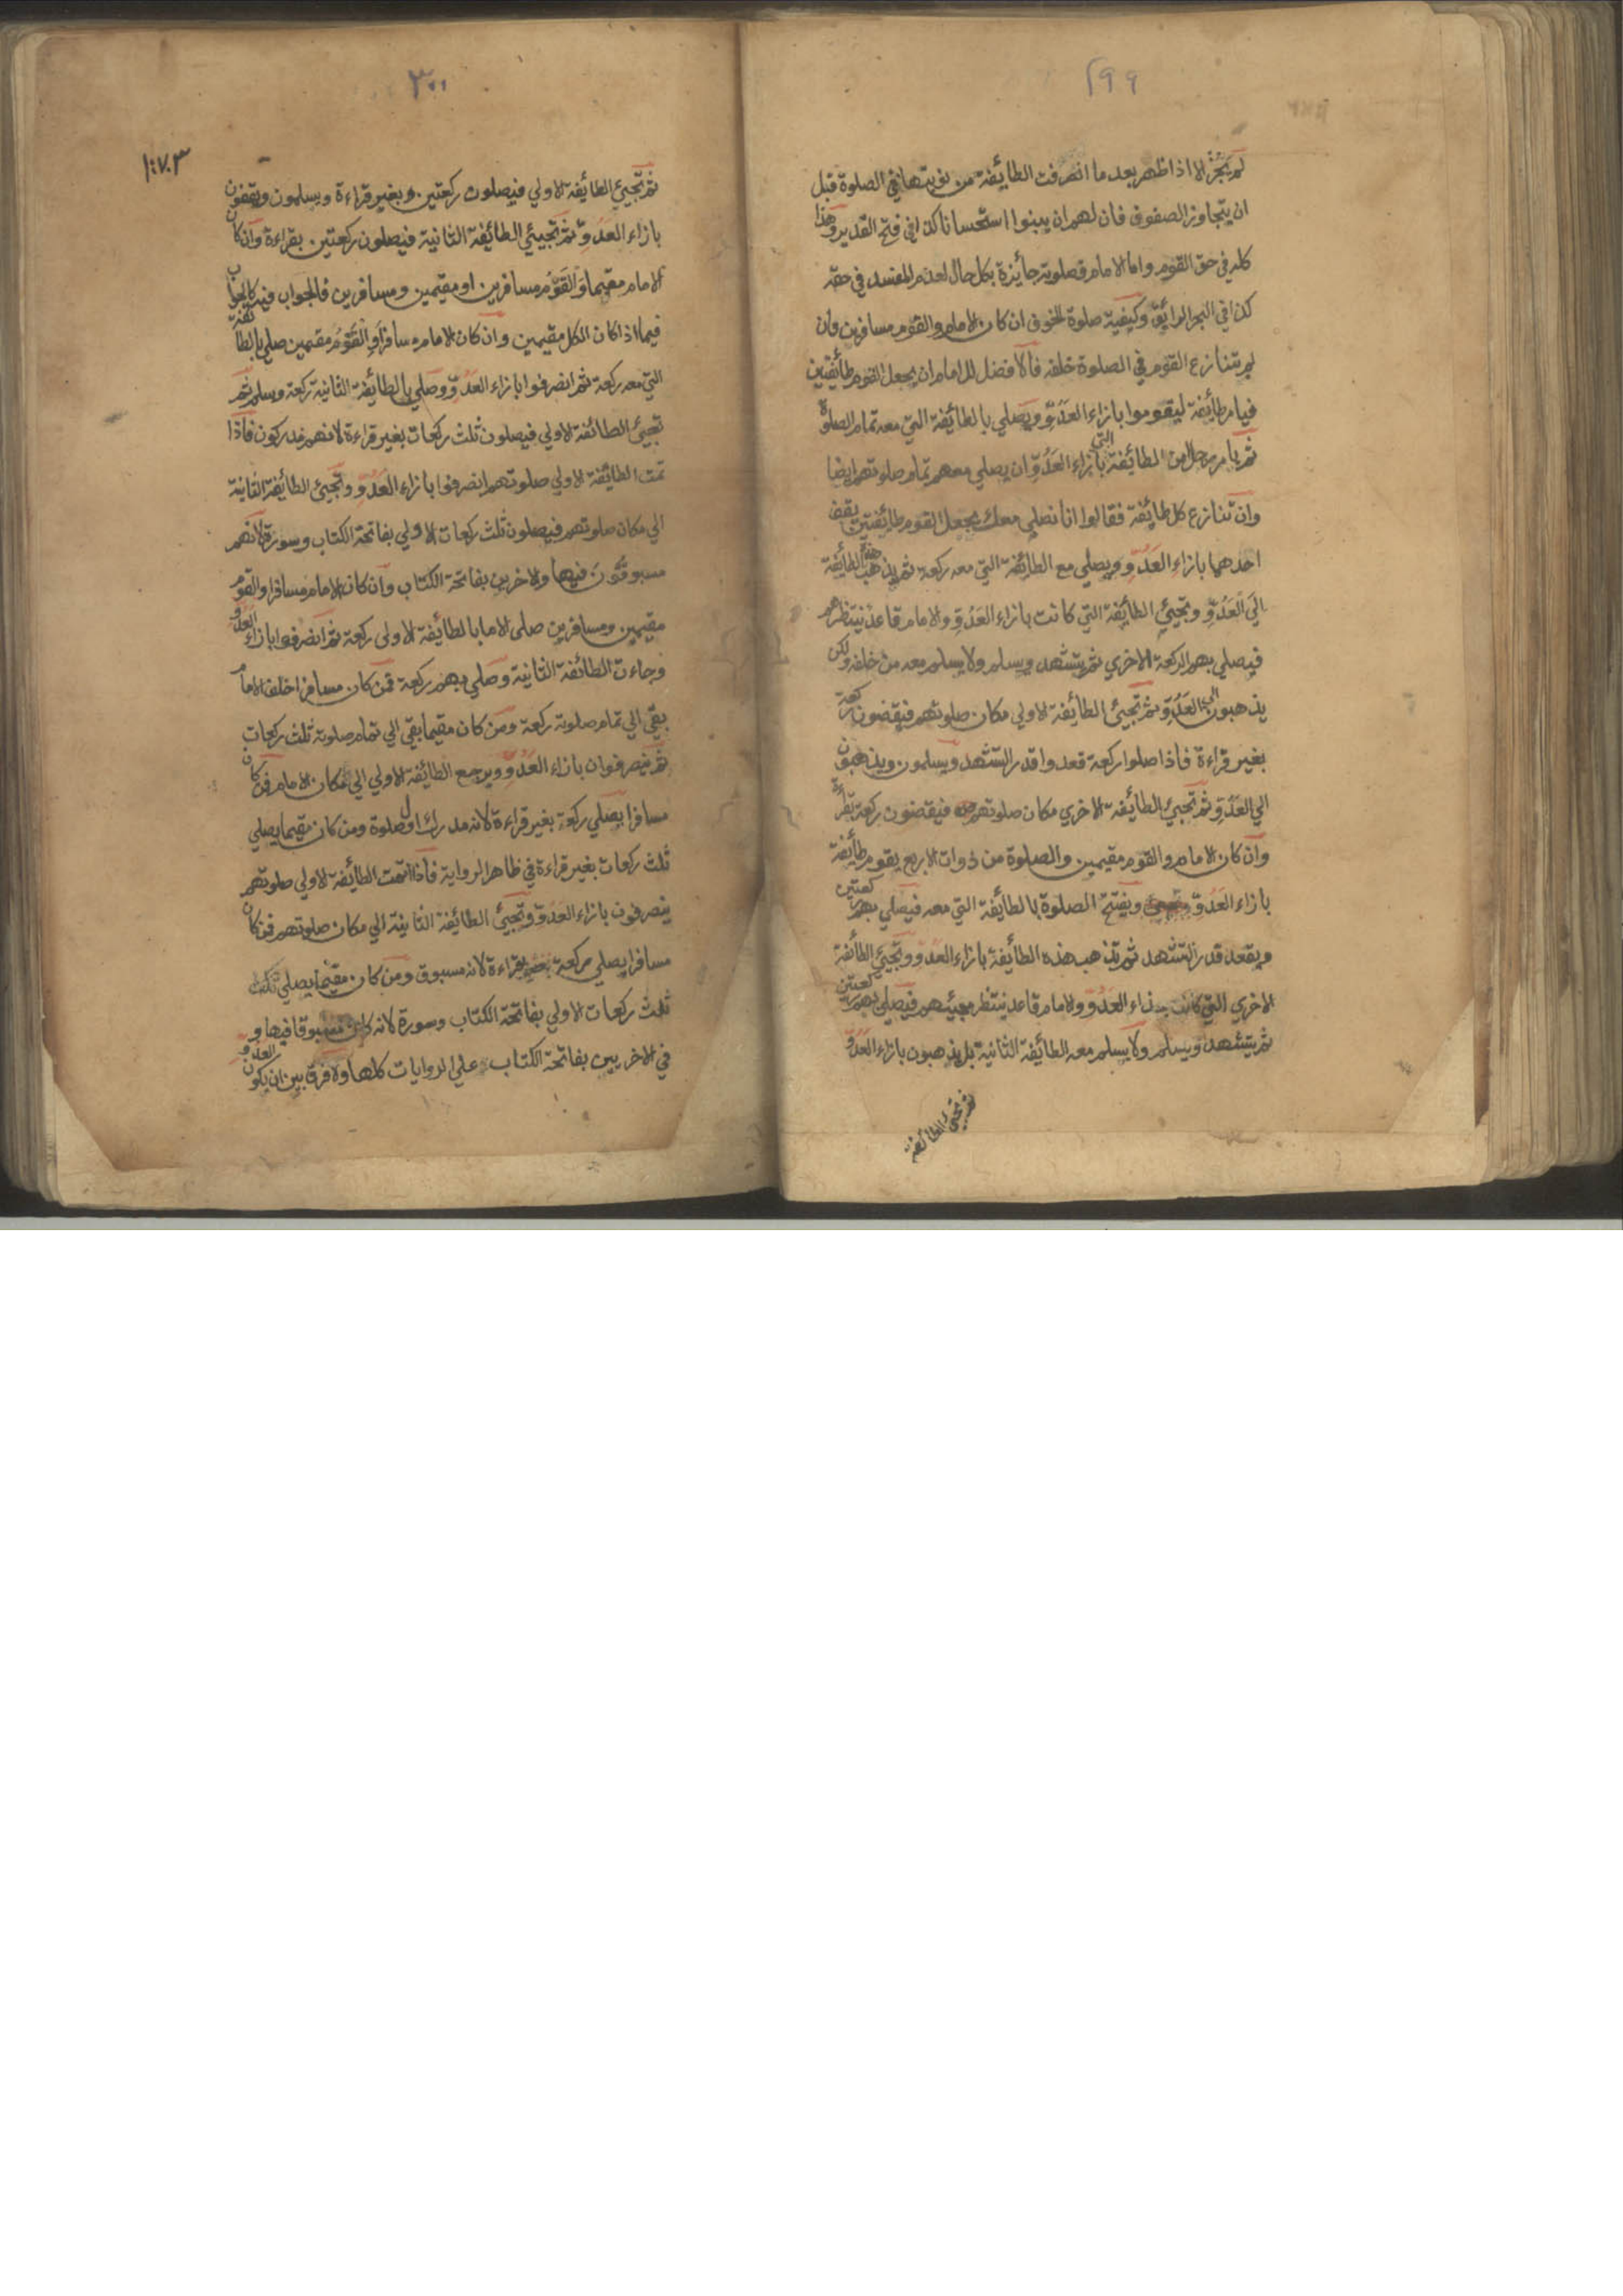 ٢٩٩
لم يجز الا اذا ظهر بعد ما انصرفت الطائفة من نوبتها في الصلوة قبل
ان يتجاوز الصفوف فان لهم ان يبنوا استحسانا كذا في فتح القدير وهذا
كله في حق القوم واما الامام فصلوته جائزة بكل حال لعدم المفسد في حقه
كذا في البحر الرائق وكيفية صلوة الخوف ان كان الامام والقوم مسافرين وان
لم يتنازع القوم في الصلوة خلفه فالافضل للامام ان يجعل القوم طائفتين
فيامر طائفة ليقوموا بازاء العدو ويصلي بالطائفة التي معه تمام الصلوة
ثم يامر رجلا من الطائفة التي بازاء العدو ان يصلي معهم تمام صلوتهم ايضا
وان تنازع كل طائفة فقالوا انا نصلي معك يجعل القوم طائفتين يقف
احدهما بازاء العدو ويصلي مع الطائفة التي معه ركعة ثم يذهب هذه الطائفة
الى العدو وتجيئ الطائفة التي كانت بازاء العدو والامام قاعد ينتظرهم
فيصلي بهم الركعة الاخري ثم يتشهد ويسلم ولا يسلم معه من خلفه ولكن
يذهبون الى العدو ثم تجيئ الطائفة الاولي مكان صلوتهم فيقضون ركعة
بغير قراءة فاذا صلوا ركعة قعدوا قدر التشهد ويسلمون ويذهبون
الي العدو ثم تجيئ الطائفة الاخري مكان صلوتهم فيقضون ركعة بقراءة
وان كان الامام والقوم مقيمين والصلوة من ذوات الاربع يقوم طائفة
بازاء العدو ويفتتح الصلوة بالطائفة التي معه فيصلي بهم ركعتين
ويقعد قدر التشهد ثم تذهب هذه الطائفة بازاء العدو وتجيئ الطائفة
الاخري التي كانت بازاء العدو والامام قاعد ينتظر مجيئهم فيصلي بهم ركعتين
ثم يتشهد ويسلم ولا يسلم معه الطائفة الثانية بل يذهبون بازاء العدو
ثم تجيئ الطائفة
٣٠٠
ثم تجيئ الطائفة الاولي فيصلون ركعتين بغير قراءة ويسلمون ويقفون
بازاء العدو ثم تجيئ الطائفة الثانية فيصلون ركعتين بقراءة وان كان
الامام مقيما والقوم مسافرين او مقيمين ومسافرين فالجواب فيه كالجواب
فيما اذا كان الكل مقيمين وان كان الامام مسافرا والقوم مقيمين صلي بالطائفة
التي معه ركعة ثم انصرفوا بازاء العدو وصلي بالطائفة الثانية ركعة وسلم ثم
تجيئ الطائفة الاولي فيصلون ثلث ركعات بغير قراءة لانهم مدركون فاذا
تمت الطائفة الاولي صلوتهم انصرفوا بازاء العدو وتجيئ الطائفة الثانية
الي مكان صلوتهم فيصلون ثلث ركعات الاولي بفاتحة الكتاب وسورة لانهم
مسبوقون فيها والاخريين بفاتحة الكتاب وان كان الامام مسافرا والقوم
مقيمين ومسافرين صلى الامام بالطائفة الاولى ركعة ثم انصرفوا بازاء العدو
وجاءت الطائفة الثانية وصلي بهم ركعة فمن كان مسافرا خلف الامام
بقي الي تمام صلوته ركعة ومن كان مقيما بقي الي تمام صلوته ثلث ركعات
ثم ينصرفوان بازاء العدو ويرجع الطائفة الاولي الي مكان الامام فمن كان
مسافرا يصلي ركعة بغير قراءة لانه مدرك اول صلوة ومن كان مقيما يصلي
ثلث ركعات بغير قراءة في ظاهر الرواية فاذا اتمت الطائفة الاولي صلوتهم
ينصرفون بازاء العدو وتجيئ الطائفة الثانية الي مكان صلوتهم فمن كان
مسافرا يصلي ركعة بقراءة لانه مسبوق ومن كان مقيما يصلي ثلث
ثلث ركعات الاولي بفاتحة الكتاب وسورة لانه كان مسبوقا فيها و
في الاخريين بفاتحة الكتاب علي الروايات كلها ولا فرق بين ان يكون العدو